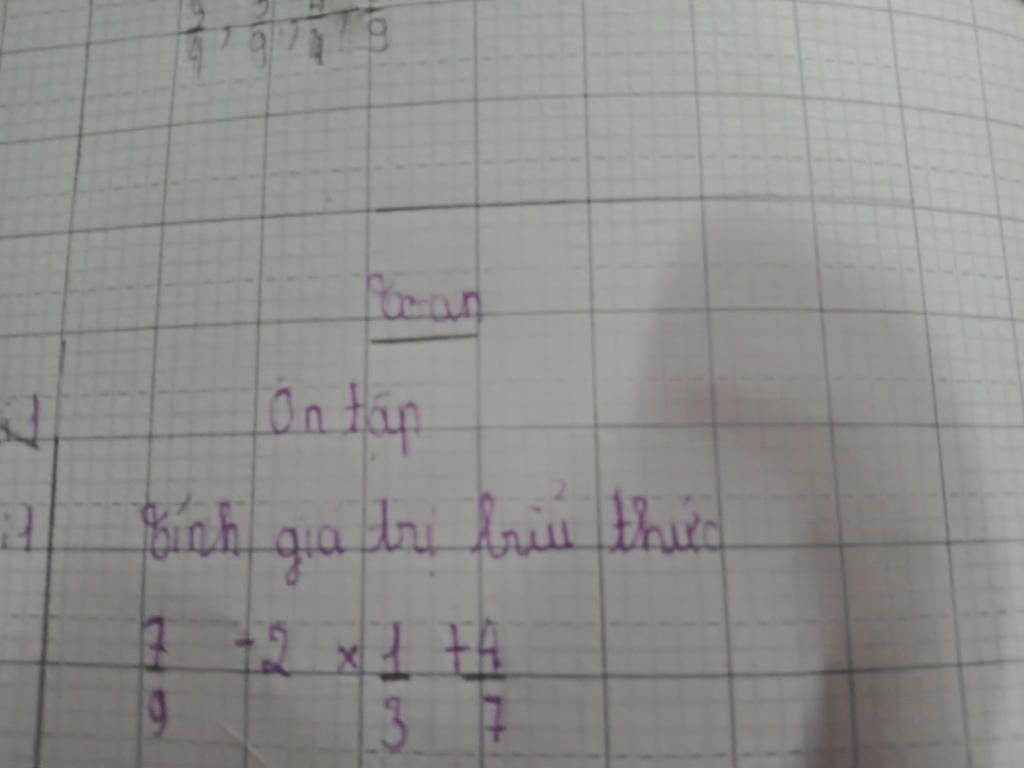 Toán
Ôn tập
Tính giá trị biểu thức
7/9 - 2 × 1/3 + 4/7